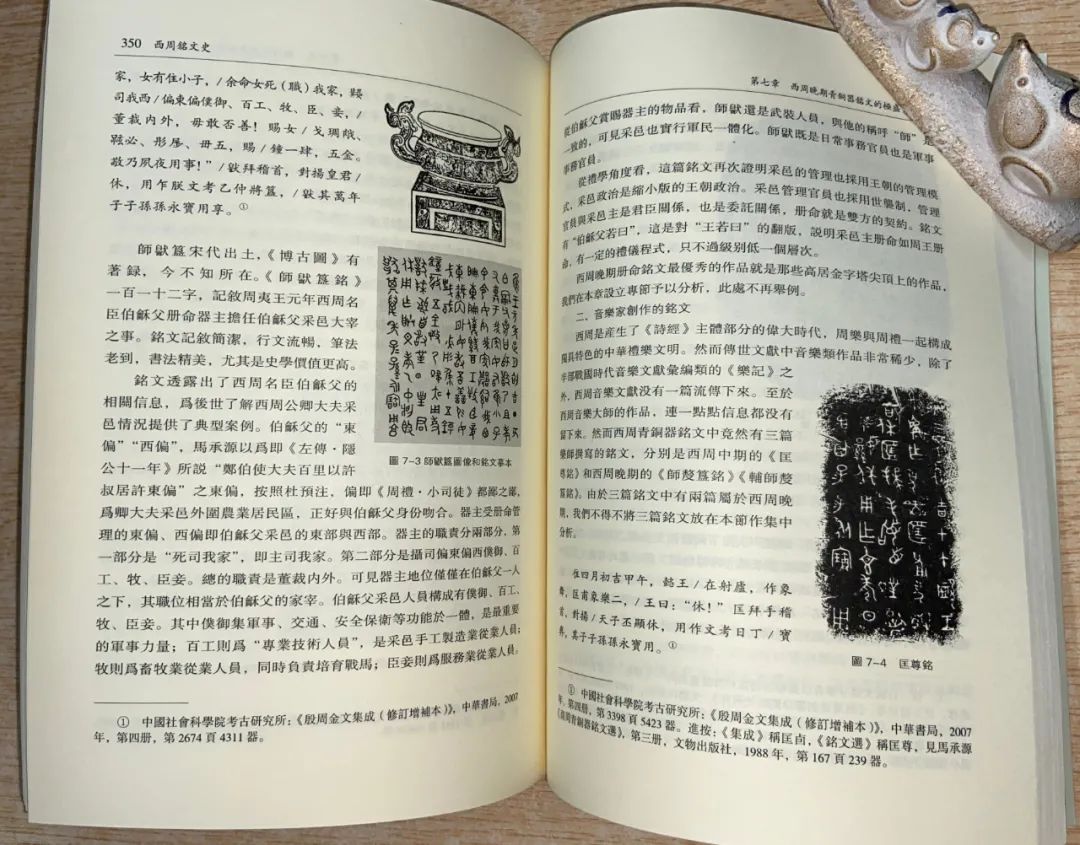 350 西周銘文史
家，女有住小子，/余命女死（職）我家，𤔲
司我西/偏東偏僕御、百工、牧、臣、妾，/
董裁内外，毋敢否善！賜女/戈琱㦸、
必、彤㡀、毌五，賜/鐘一肆，五金。
敬乃夙夜用事！”/㝬拜稽首，對揚皇君/
休，用乍朕文考乙仲將簋，/㝬其萬年
子子孫孫永寶用享。①
師㝬簋宋代出土，《博古圖》有
著録，今不知所在。《師㝬簋銘》
一百一十二字，記敘周夷王元年西周名
臣伯龢父册命器主擔任伯龢父采邑大宰
之事。銘文記敘簡潔，行文流暢，筆法
老到，書法精美，尤其是史學價值更高。
銘文透露出了西周名臣伯龢父的
相關信息，爲後世了解西周公卿大夫采
邑情況提供了典型案例。伯龢父的“東
偏”“西偏”，馬承源以爲即《左傳·隱
公十一年》所説“鄭伯使大夫百里以許
叔居許東偏”之東偏，按照杜預注，偏即《周禮·小司徒》都鄙之鄙，
爲卿大夫采邑外圍農業居民區，正好與伯龢父身份吻合。器主受册命管
理的東偏、西偏即伯龢父采邑的東部與西部。器主的職責分兩部分，第
一部分是“死司我家”，即主司我家。第二部分是攝司偏東偏西僕御、百
工、牧、臣妾。總的職責是董裁内外。可見器主地位僅僅在伯龢父一人
之下，其職位相當於伯龢父的家宰。伯龢父采邑人員構成有僕御、百工、
牧、臣妾。其中僕御集軍事、交通、安全保衛等功能於一體，是最重要
的軍事力量；百工則爲“專業技術人員”，是采邑手工製造業從業人員；
牧則爲畜牧業從業人員，同時負責培育戰馬；臣妾則爲服務業從業人員。
圖 7-3 師㝬簋圖像和銘文摹本
① 中國社會科學院考古研究所：《殷周金文集成（修訂增補本）》，中華書局，2007
年，第四册，第 2674 頁 4311 器。
第七章 西周晚期青銅器銘文的極盛
從伯龢父賞賜器主的物品看，師㝬還是武裝人員，與他的稱呼“師”是
一致的，可見采邑也實行軍民一體化。師㝬既是日常事務官員也是軍事
事務官員。
從禮學角度看，這篇銘文再次證明采邑的管理也採用王朝的管理模
式，采邑政治是縮小版的王朝政治。采邑管理官員也採用世襲制，管理
官員與采邑主是君臣關係，也是委託關係，册命就是雙方的契約。銘文
有“伯龢父若曰”，這是對“王若曰”的翻版，説明采邑主册命如周王册
命，有一定的禮儀程式，只不過級别低一個層次。
西周晚期册命銘文最優秀的作品就是那些高居金字塔尖頂上的作品，
我們在本章設立專節予以分析，此處不再舉例。
二、音樂家創作的銘文
西周是産生了《詩經》主體部分的偉大時代，周樂與周禮一起構成
獨具特色的中華禮樂文明。然而傳世文獻中音樂類作品非常稀少，除了
半部戰國時代音樂文獻彙編類的《樂記》之
外，西周音樂文獻没有一篇流傳下來。至於
西周音樂大師的作品，連一點點信息都没有
留下來。然而西周青銅器銘文中竟然有三篇
樂師撰寫的銘文，分别是西周中期的《匡
尊銘》和西周晚期的《師嫠簋銘》《輔師嫠
簋銘》。由於三篇銘文中有兩篇屬於西周晚
期，我們不得不將三篇銘文放在本節作集中
分析。
隹四月初吉甲午，懿王/在射廬，作象
，匡甫象樂二，/王曰：“休！”匡拜手稽
首，對揚/天子丕顯休，用作文考日丁/寶
彝，其子子孫孫永寶用。①
圖 7-4 匡尊銘
① 中國社會科學院考古研究所：《殷周金文集成（修訂增補本）》，中華書局，2007
年，第四册，第 3398 頁 5423 器。進按：《集成》稱匡卣，《銘文選》稱匡尊，見馬承源
《商周青銅器銘文選》，第三册，文物出版社，1988 年，第 167 頁 239 器。